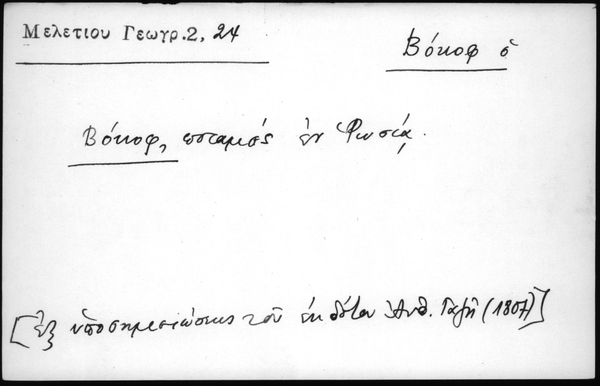 Μελετίου Γεωγρ.2, 24
Βόκοφ ὁ
Βόκοφ, ποταμὸς ἐν Ῥωσίᾳ.
[ἐξ ὑποσημειώσεως τοῦ ἐκδότου Ἀνθ. Γαζῆ (1807)]